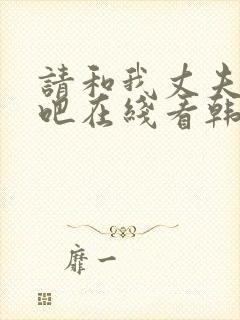 請和我丈夫
吧在綫看韩
靡一